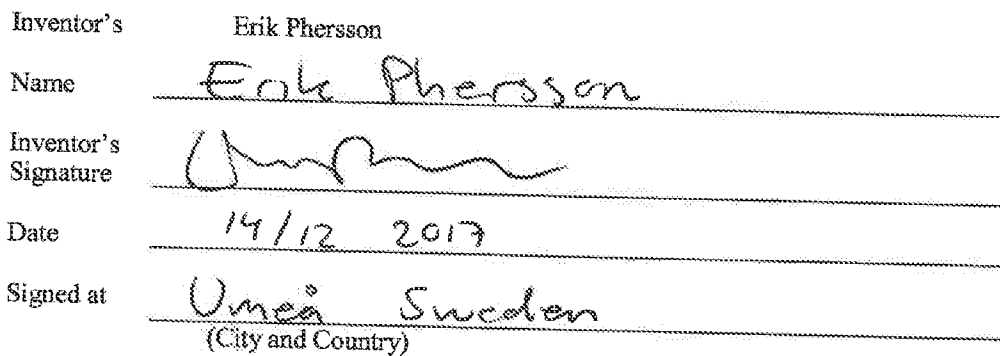 Inventor's Erik Phersson
Name Erik Phersson
Inventor's
Signature
Date 14/12 2017
Signed at Umeå Sweden
(City and Country)